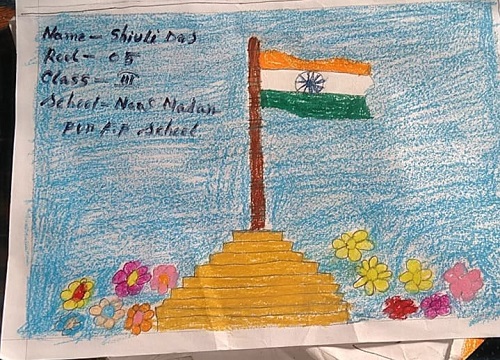 Name - Shiuli Das
Rool - 05
Class - III
School - Madan
A.P School